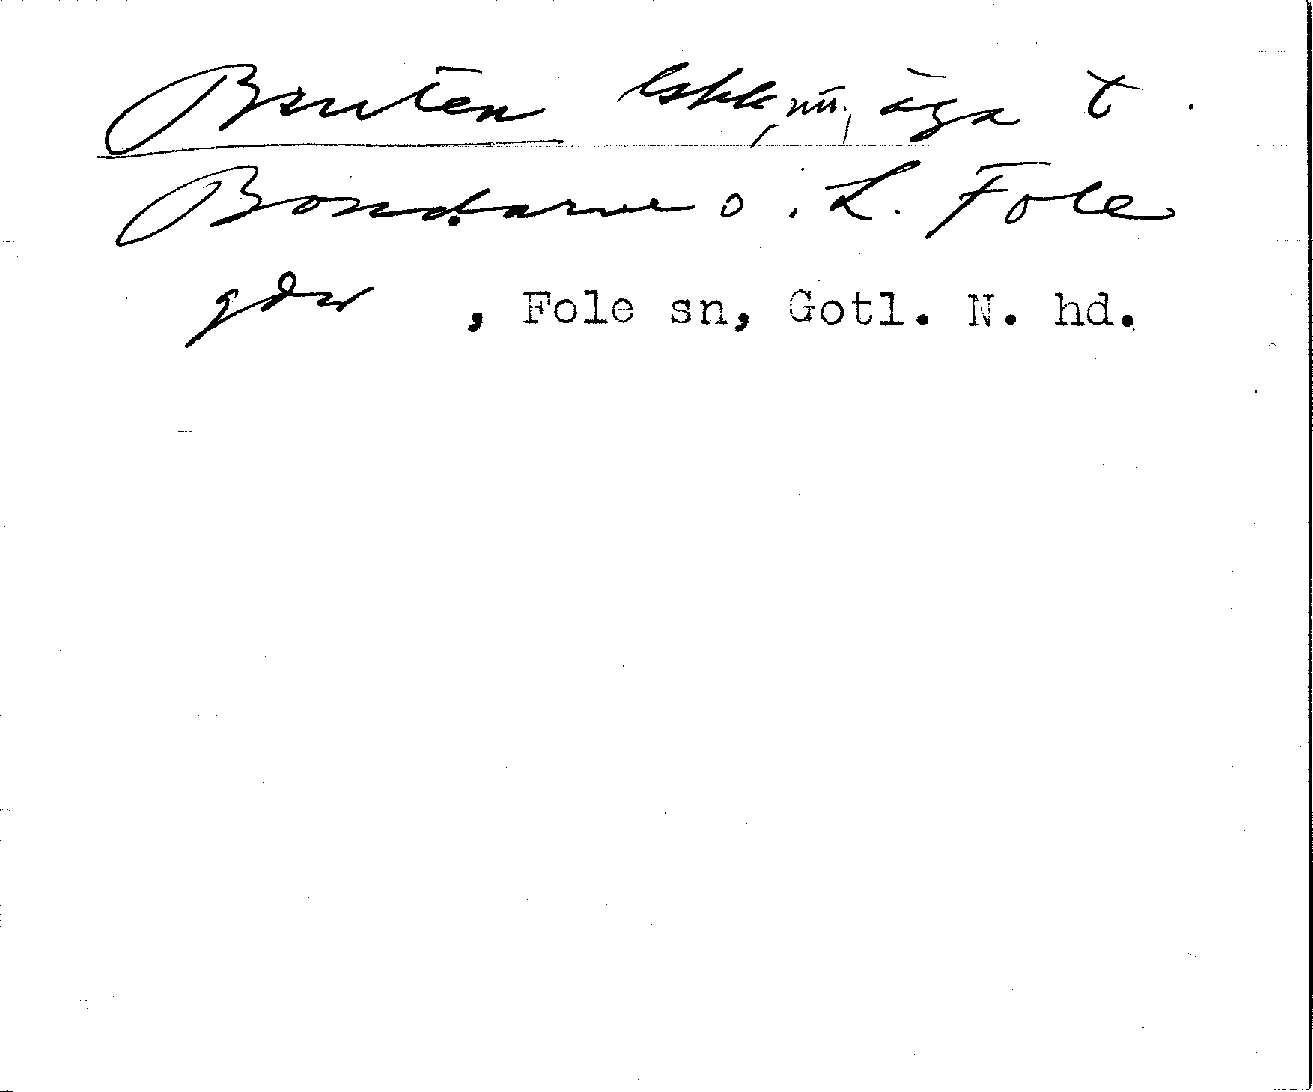 Bruten , nu, äga t.
Bondarve o. L. Fole
gdr , Fole sn, Gotl. N. hd.